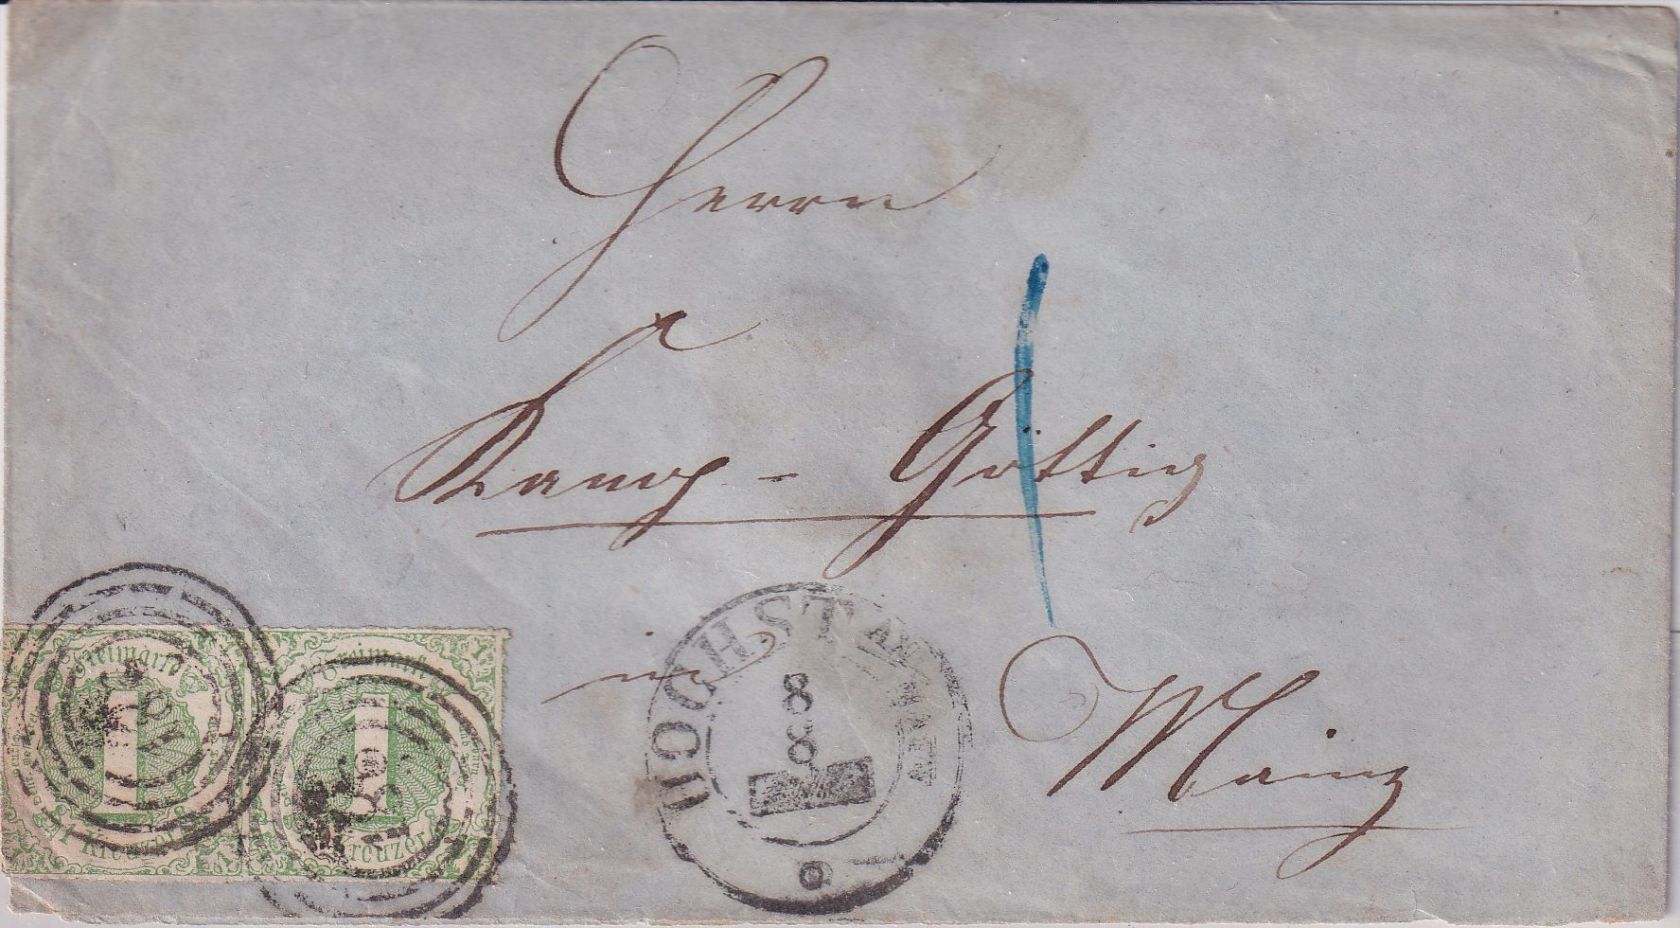 Herrn
Kamp-Gottig
in Mainz
HÖCHST AM MAIN
8
8
Freimarke
1
Kreuzer
Freimarke
1
Kreuzer
1